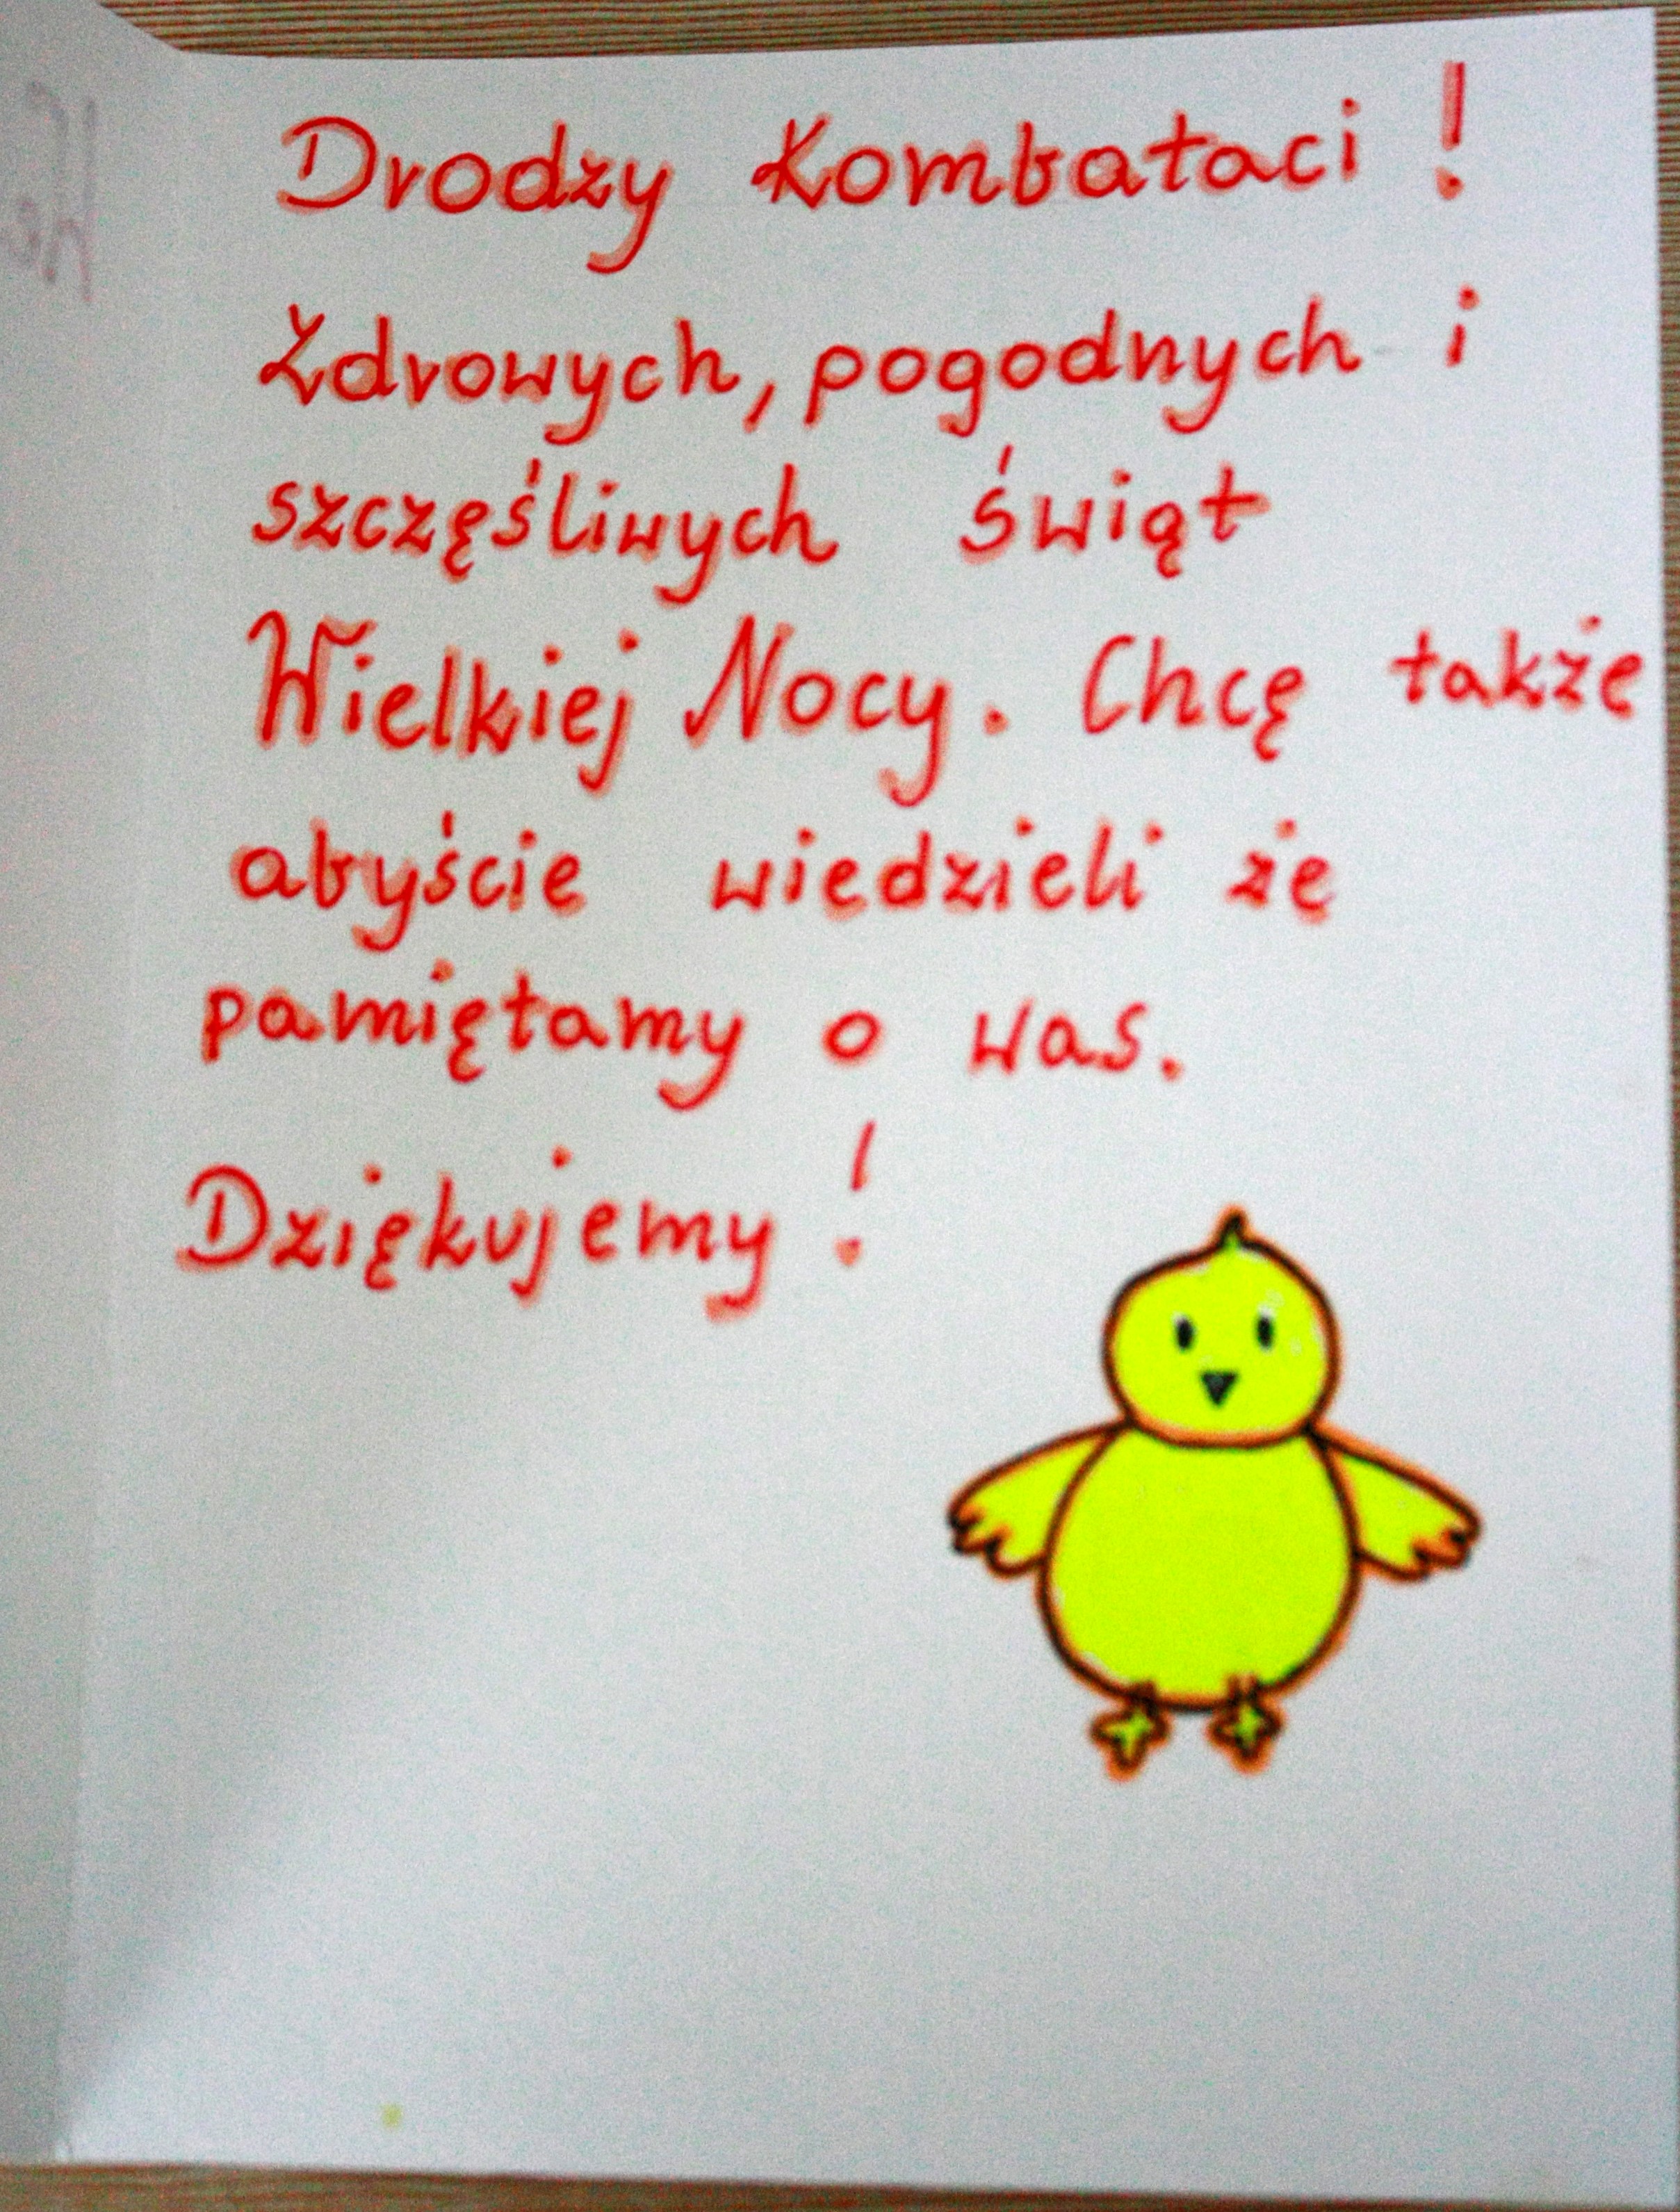 Drodzy Kombataci!
Zdrowych, pogodnych i
szczęśliwych świąt
Wielkiej Nocy. Chcę także
abyście wiedzieli że
pamiętamy o was.
Dziękujemy!